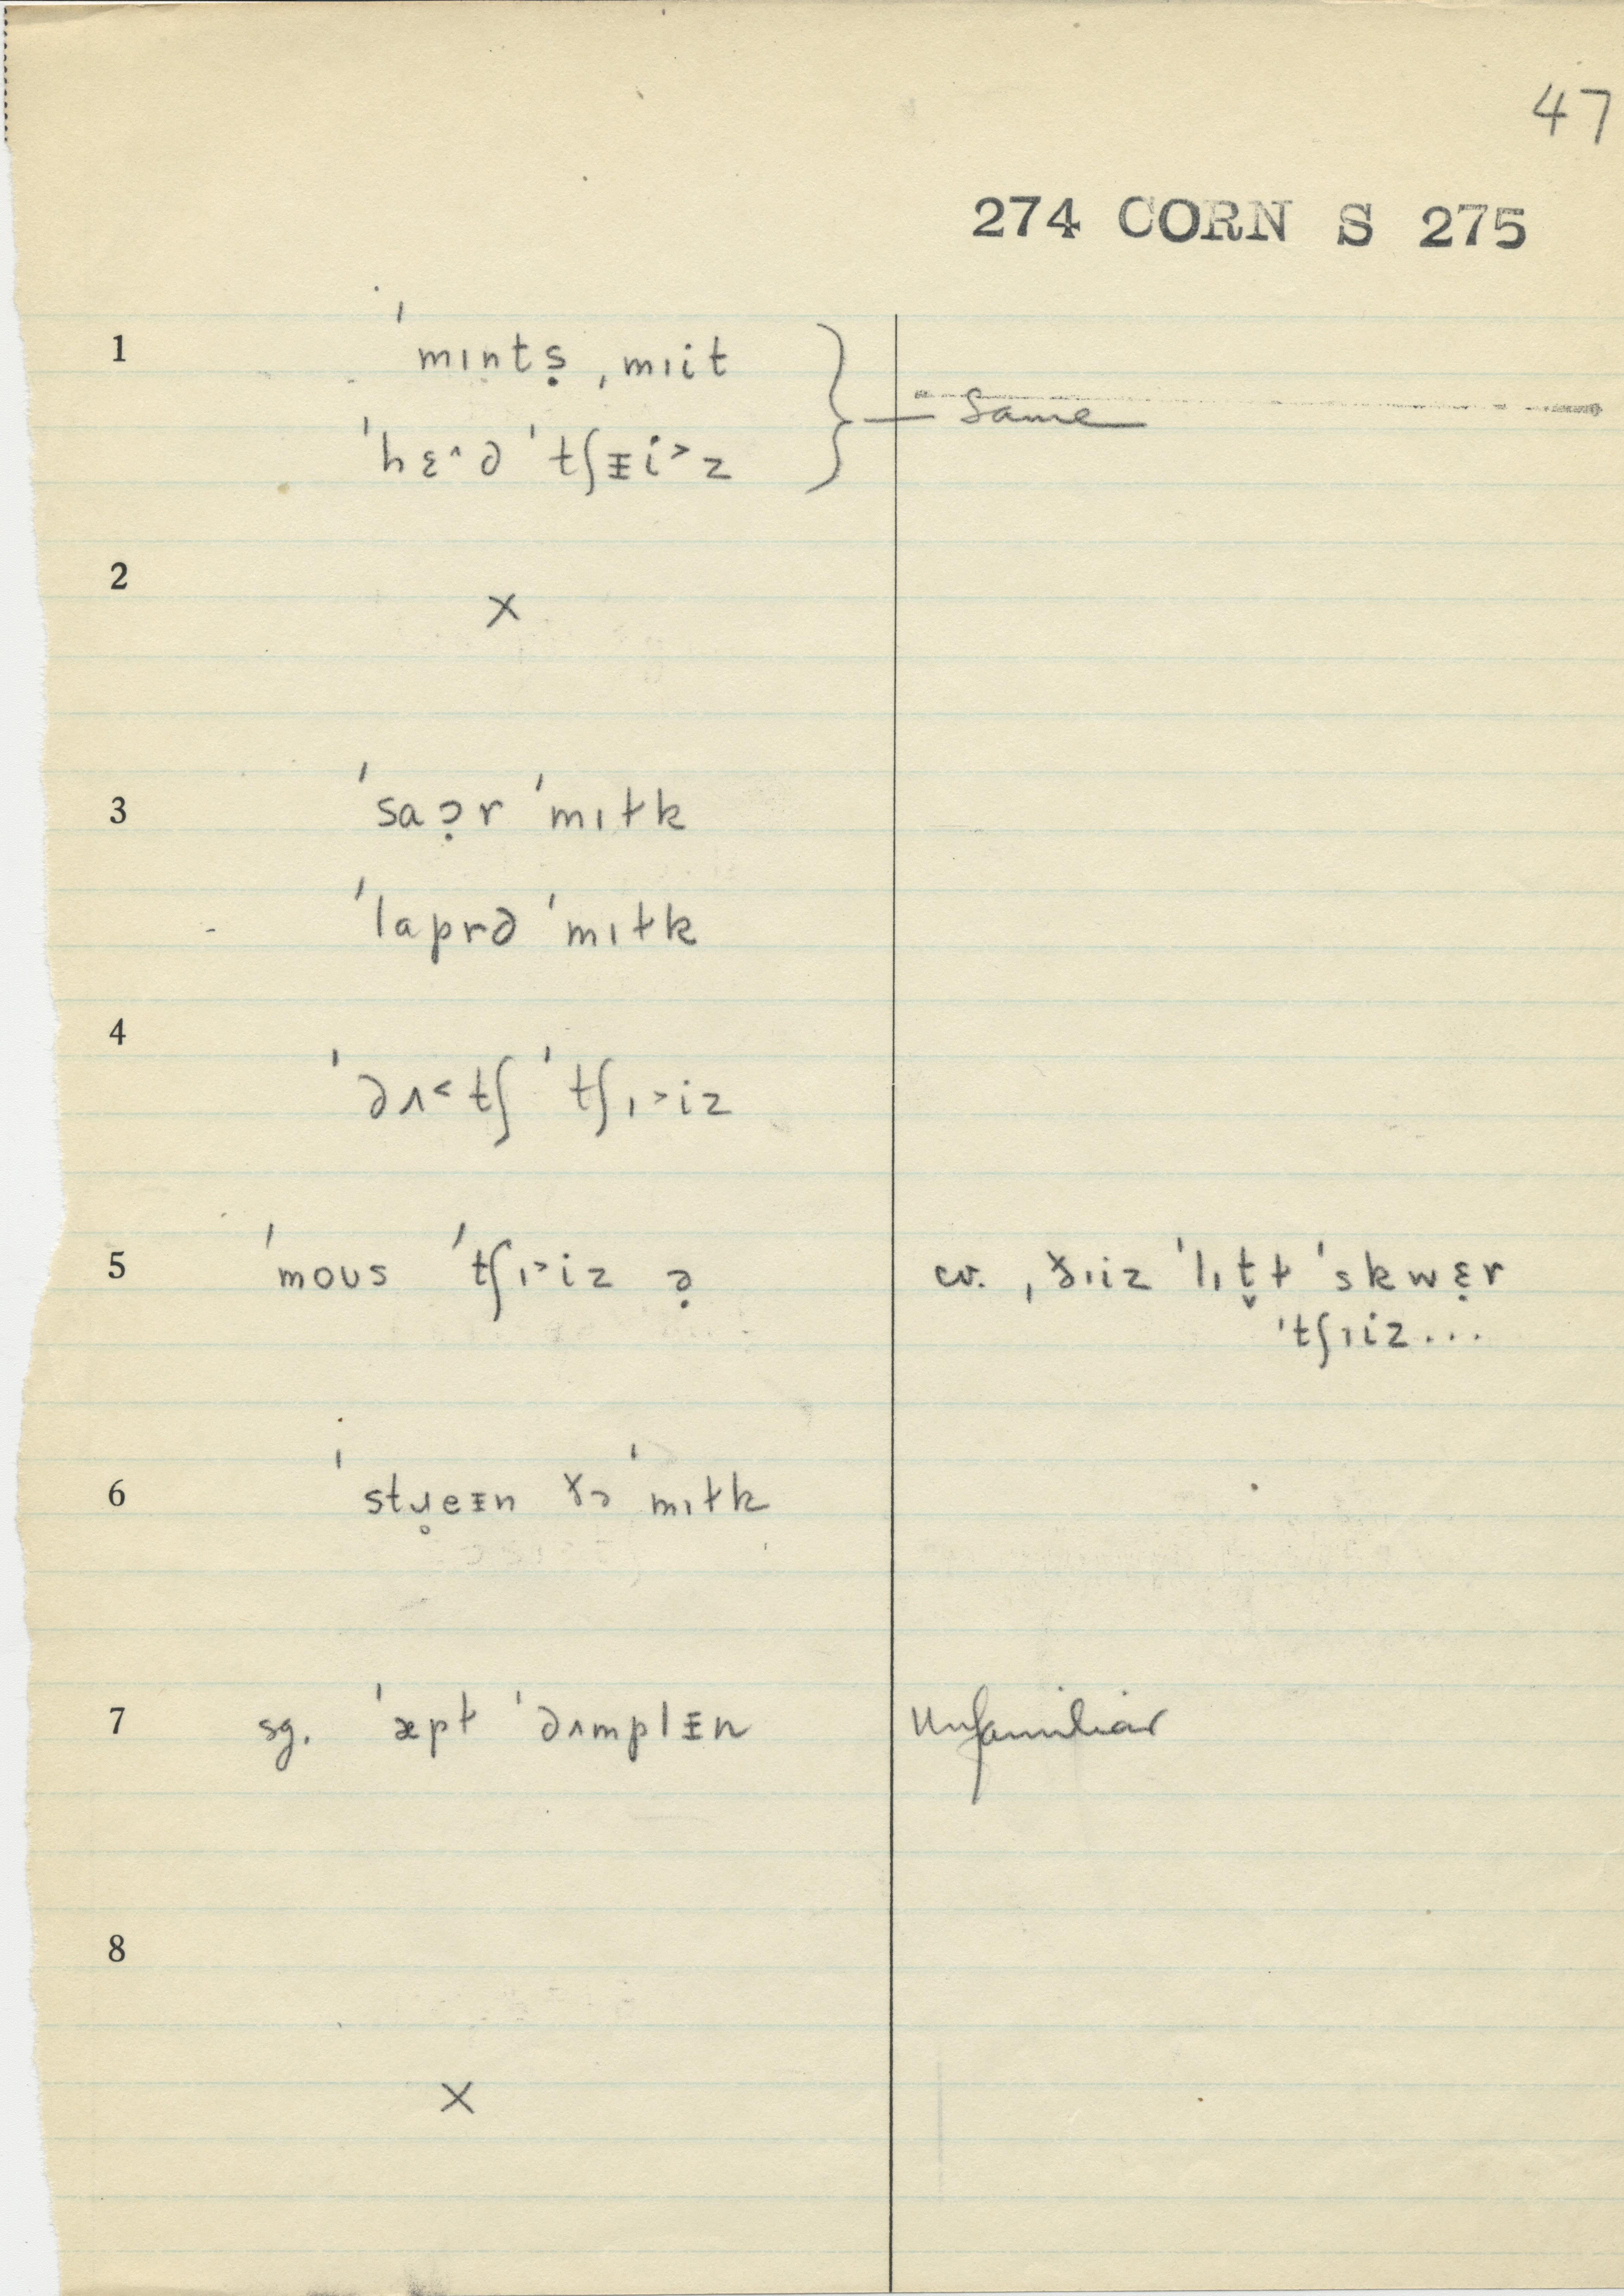 47
274 CORN S 275
1 ˈmɪntṣ ˌmɪit
ˈhɛ˄ə ˈtʃᵻi˃z } — Same
2 ×
3 ˈsaɔ̣r ˈmɪɫk
ˈlaprə ˈmɪɫk
4 ˈdʌ˂tʃ ˈtʃɪ˃iz
5 ˈmoʊs ˈtʃɪ˃iz ə̣ cv. ˌðɪiz ˈlɪt̬ɫ ˈskwɛ̣r
ˈtʃɪiz...
6 ˈstɹ̥eᵻn ðə ˈmɪɫk
7 sg. ˈæpɫ ˈdʌmplᵻn Unfamiliar
8 ×